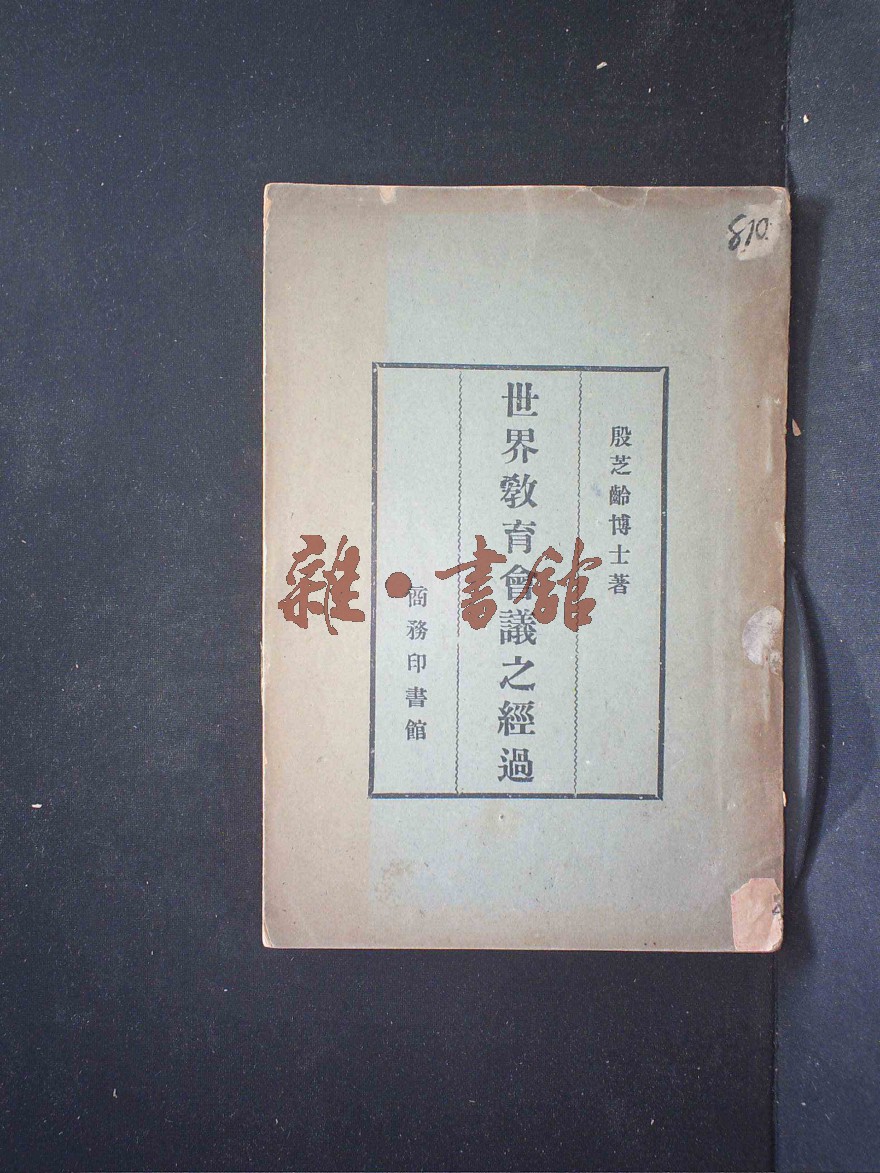 810
殷芝齡博士著
世界敎育會議之經過
商務印書館
雜·書舘